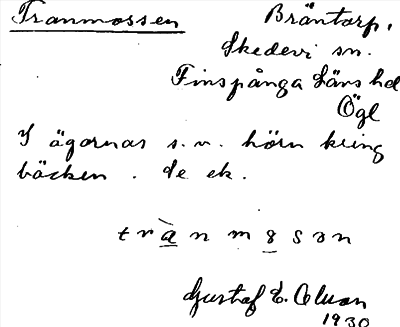 Tranmossen
Bräntorp,
Skedevi sn.
Finspånga Läns hd
Ögl
I ägornas s.v. hörn kring
bäcken. de ek.
trànmosən
Gustaf E.
1930